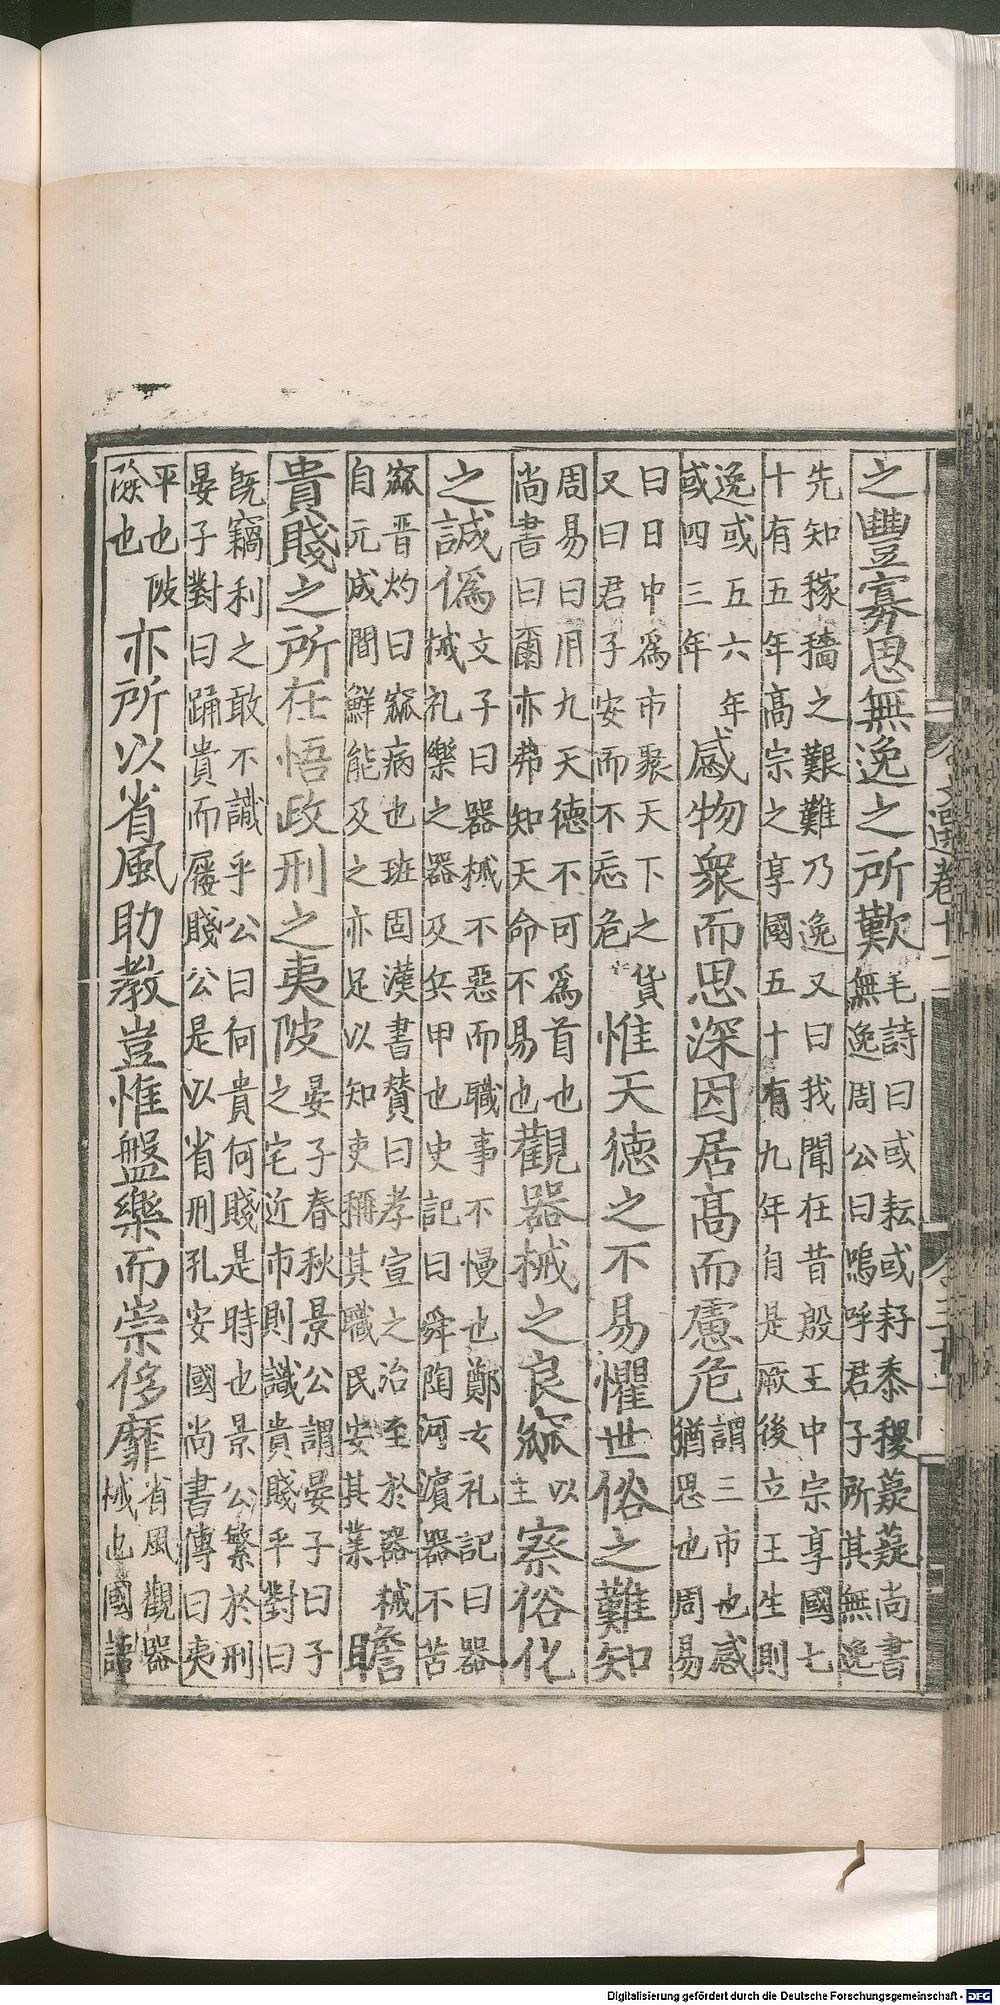 之豐寡思無逸之所歎毛詩曰或耘或耔黍稷薿薿尚書無逸周公曰嗚呼君子所其無逸
先知稼穡之艱難乃逸又曰我聞在昔殷王中宗享國七十有五年高宗之享國五十有九年自是厥後立王生則
逸或五六年或四三年感物衆而思深因居高而慮危謂三市也感猶思也周易
曰日中爲市聚天下之貨又曰君子安而不忘危惟天德之不易懼世俗之難知
周易曰用九天德不可爲首也尚書曰爾亦弗知天命不易也觀器械之良窳以主察俗化
之誠僞文子曰器械不惡而職事不慢也鄭玄礼記曰器械礼樂之器及兵甲也史記曰舜陶河濱器不苦
窳晉灼曰窳病也班固漢書賛曰孝宣之治至於器械自元成間鮮能及之亦足以知吏稱其職民安其業瞻
貴賤之所在悟政刑之夷陂晏子春秋景公謂晏子曰子之宅近市則識貴賤乎對曰
旣竊利之敢不識乎公曰何貴何賤是時也景公繁於刑晏子對曰踊貴而屨賤公是以省刑孔安國尚書傳曰夷
平也陂險也亦所以省風助教豈惟盤樂而崇侈靡省風觀器械也國語
Digitalisierung gefördert durch die Deutsche Forschungsgemeinschaft - DFG